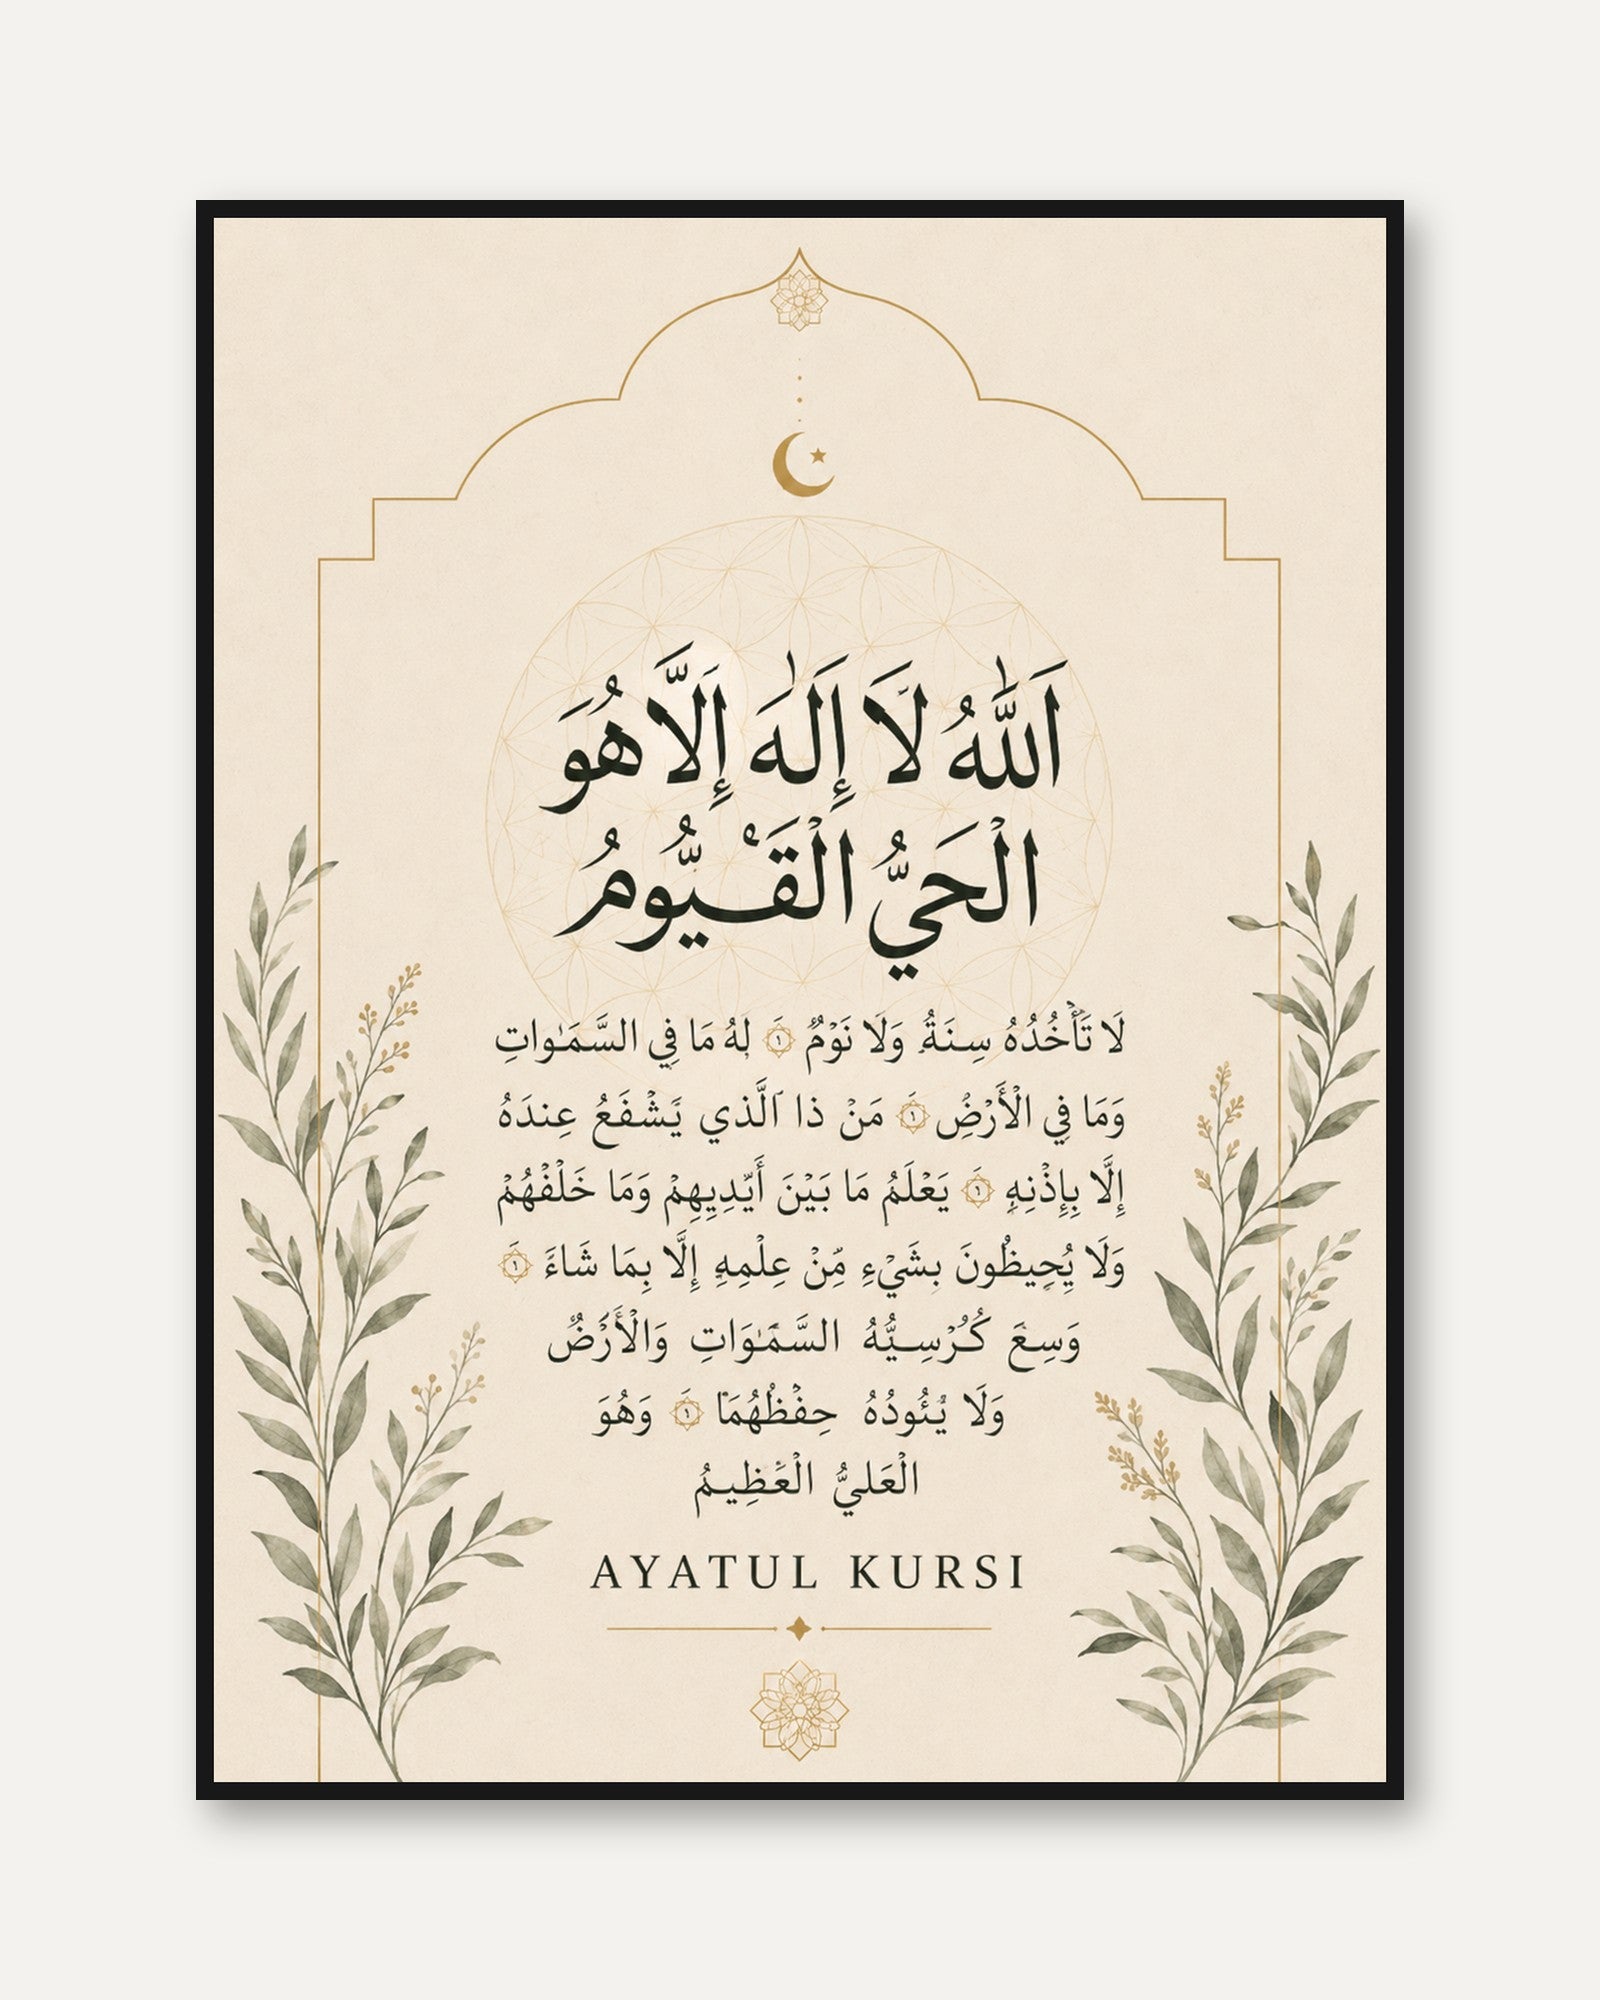 اَللّٰهُ لَا إِلَهَ إِلَّا هُوَ
الْحَيُّ الْقَيُّومُ
لَا تَأْخُذُهُ سِنَةٌ وَلَا نَوْمٌ ۝١ لَهُ مَا فِي السَّمَوَاتِ
وَمَا فِي الْأَرْضِ ۝١ مَنْ ذَا الَّذي يَشْفَعُ عِندَهُ
إِلَّا بِإِذْنِهِ ۝١ يَعْلَمُ مَا بَيْنَ أَيْدِيهِمْ وَمَا خَلْفَهُمْ
وَلَا يُحِيطُونَ بِشَيْءٍ مِّنْ عِلْمِهِ إِلَّا بِمَا شَاءَ ۝١
وَسِعَ كُرْسِيُّهُ السَّمَوَاتِ وَالْأَرْضَ
وَلَا يَئُودُهُ حِفْظُهُمَا ۝١ وَهُوَ
الْعَليُّ الْعَظِيمُ
AYATUL KURSI